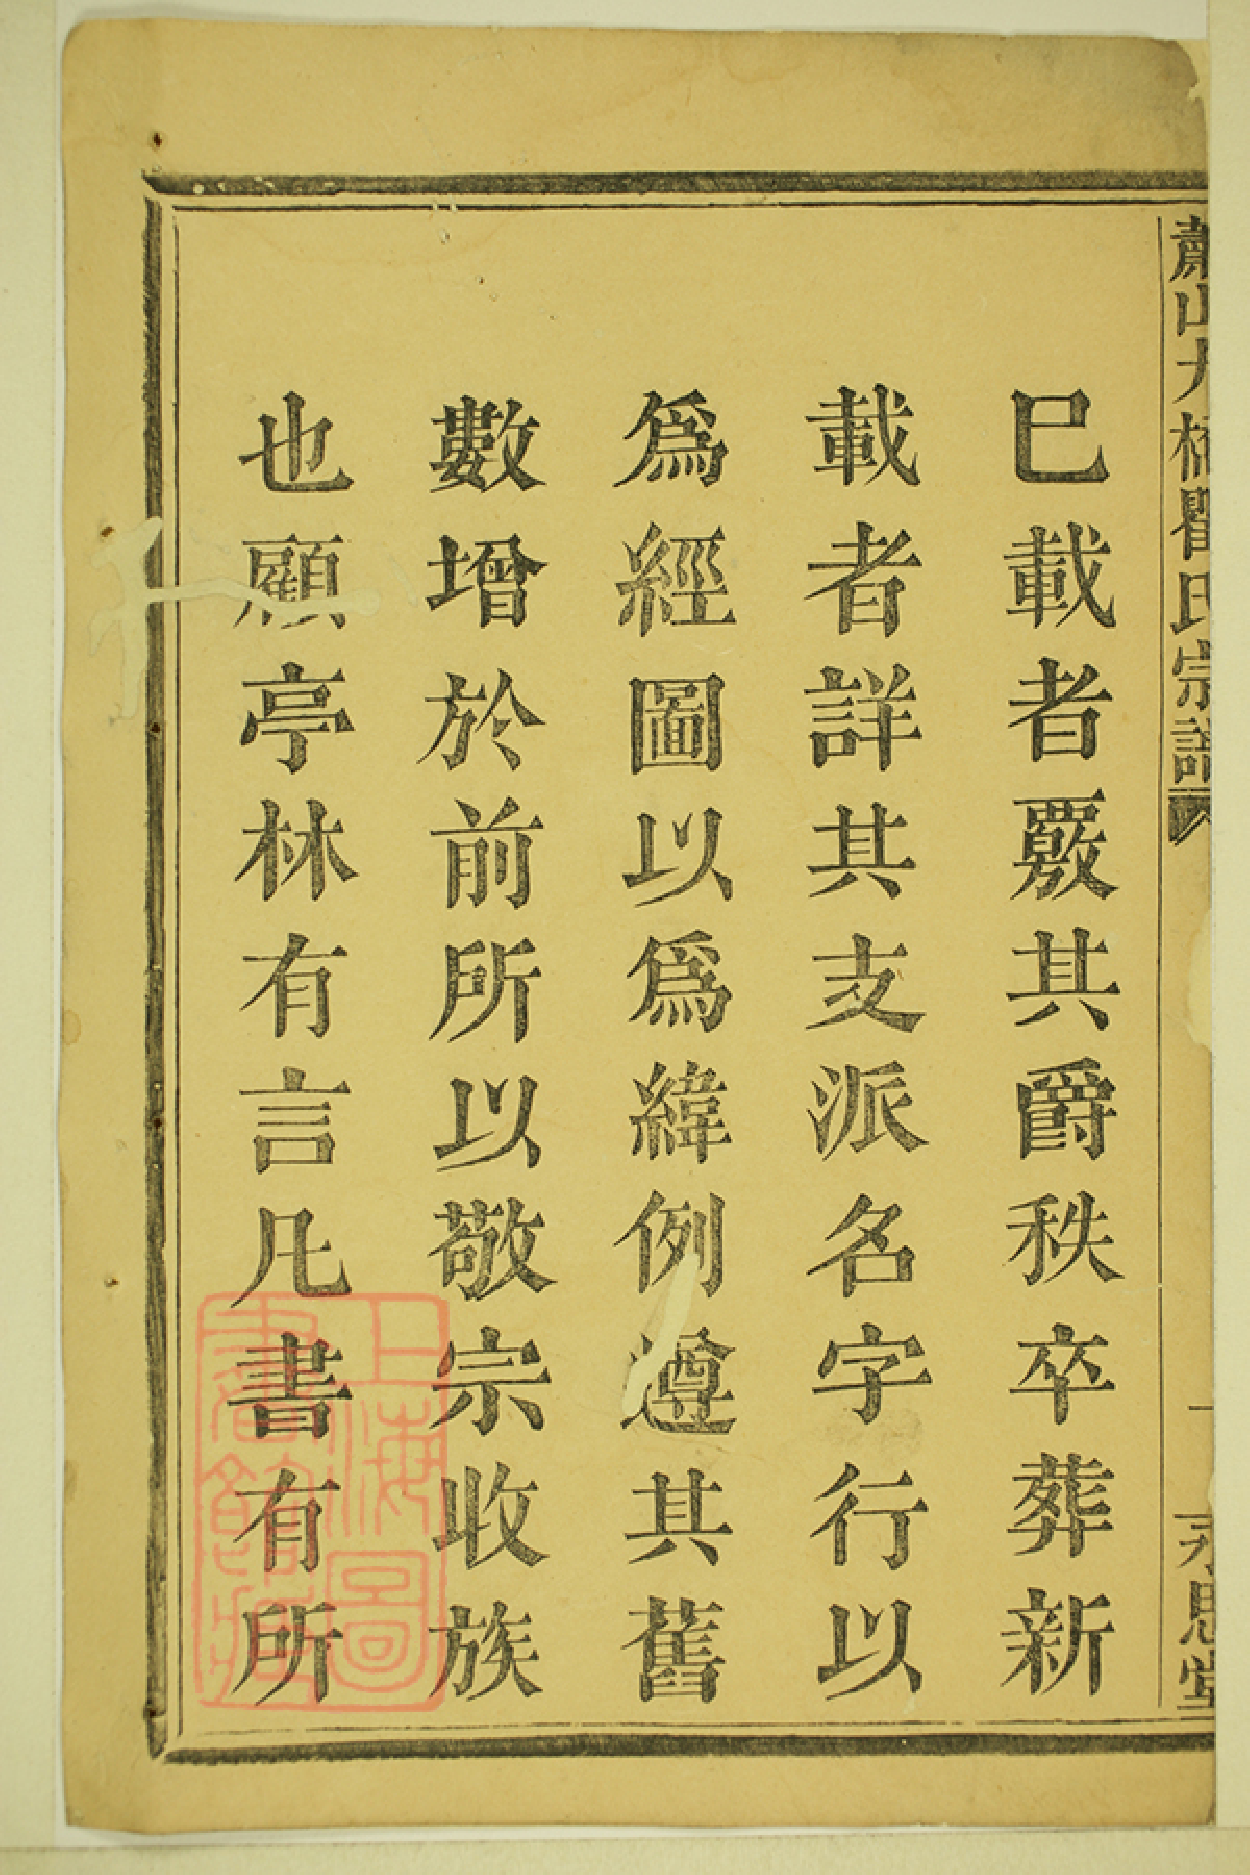 蕭山大橋瞿氏宗譜
一
永思堂
巳載者覈其爵秩卒葬新
載者詳其支派名字行以
爲經圖以爲緯例遵其舊
數增於前所以敬宗收族
也顧亭林有言凡書有所
上海圖
書館藏